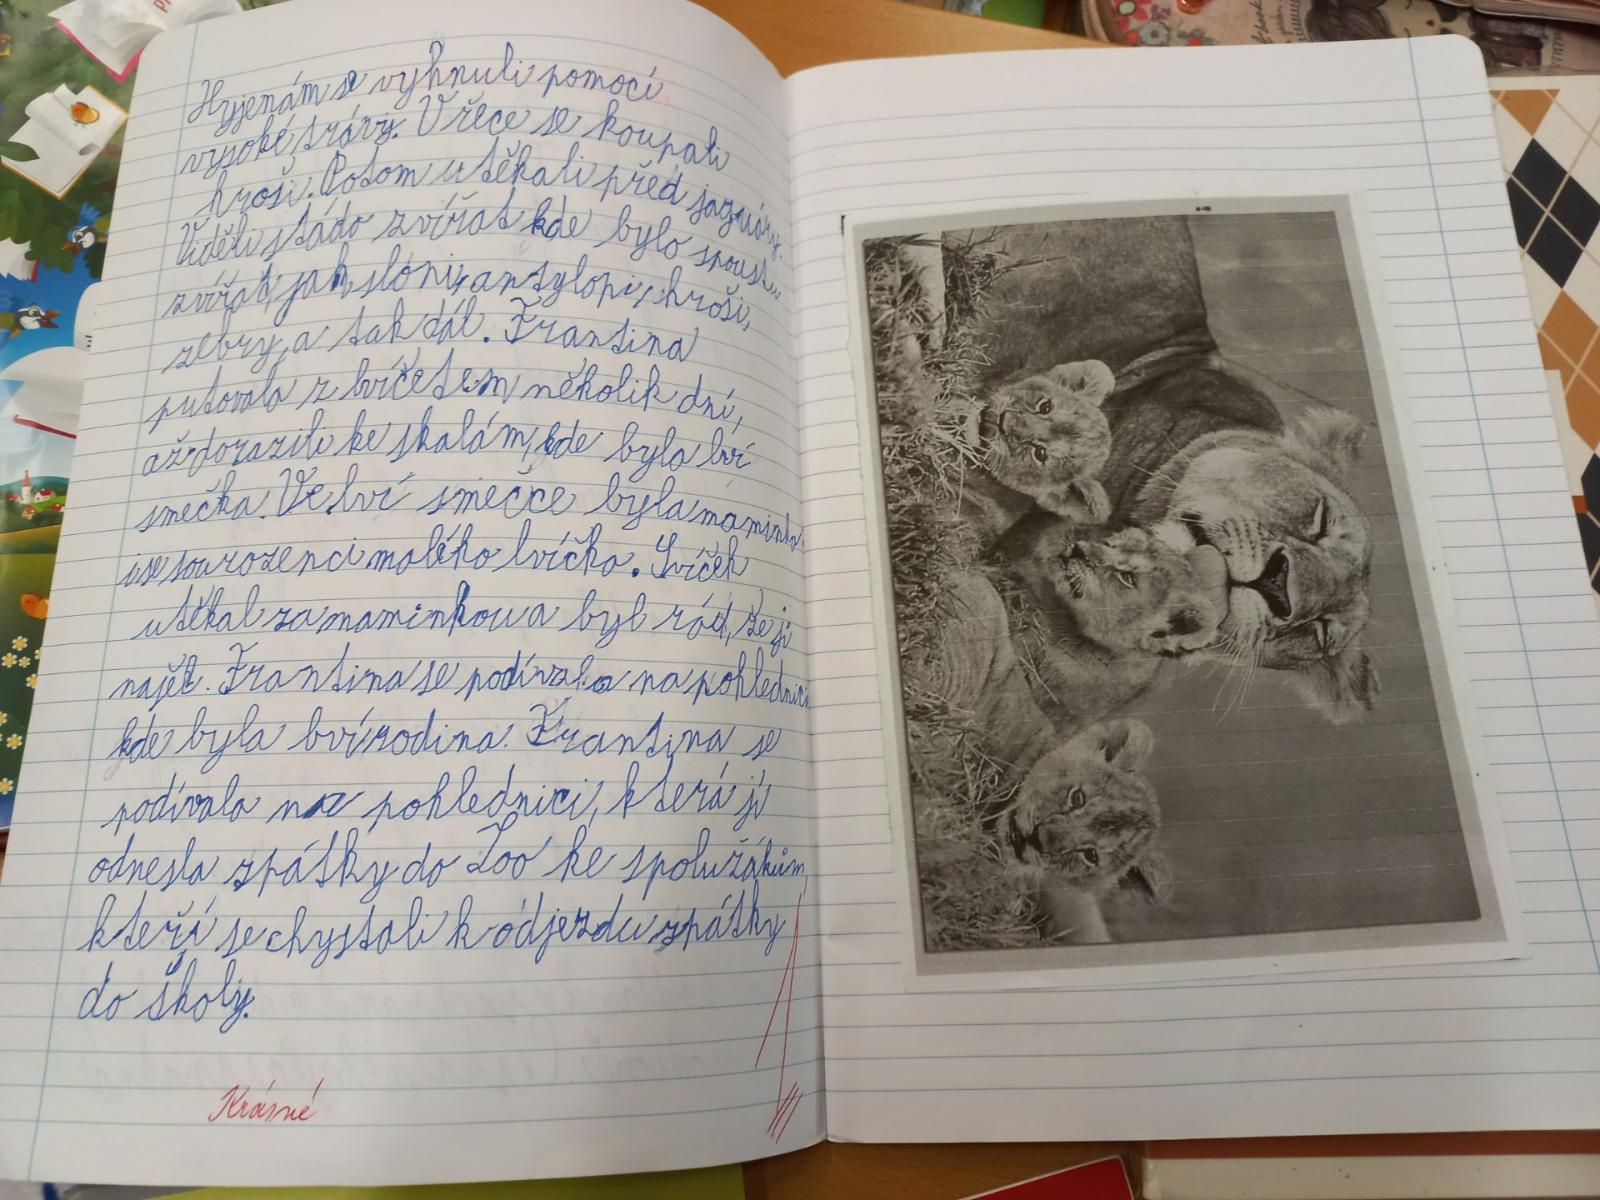 Hyjenám se vyhnuli pomocí
vysoké trávy. V řece se koupali
hroši. Potom utěkali před jaguáry.
Viděli stádo zvířat kde bylo spoustu
zvířat, jak sloni, antylopi, hroši,
zebry, a tak dál. Frantina
putovala z lvíčetem několik dní,
až dorazili ke skalám, kde byla lví
smečka. Ve lví smečce byla maminka
i se sourozenci malého lvíčka. Lvíček
utěkal za maminkou a byl rád, že ji
najět. Frantina se podívala na pohlednici
kde byla lví rodina. Frantina se
podívala na pohlednici, která ji
odnesla zpátky do Zoo ke spolužákům,
kteří se chystali k odjezdu zpátky
do školy.
Krásné